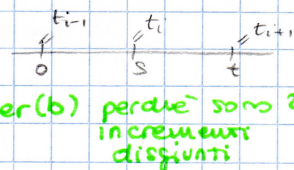 t_{i-1} t_i t_{i+1}
0 s t
er (b) perché sono 2
incrementi
disgiunti